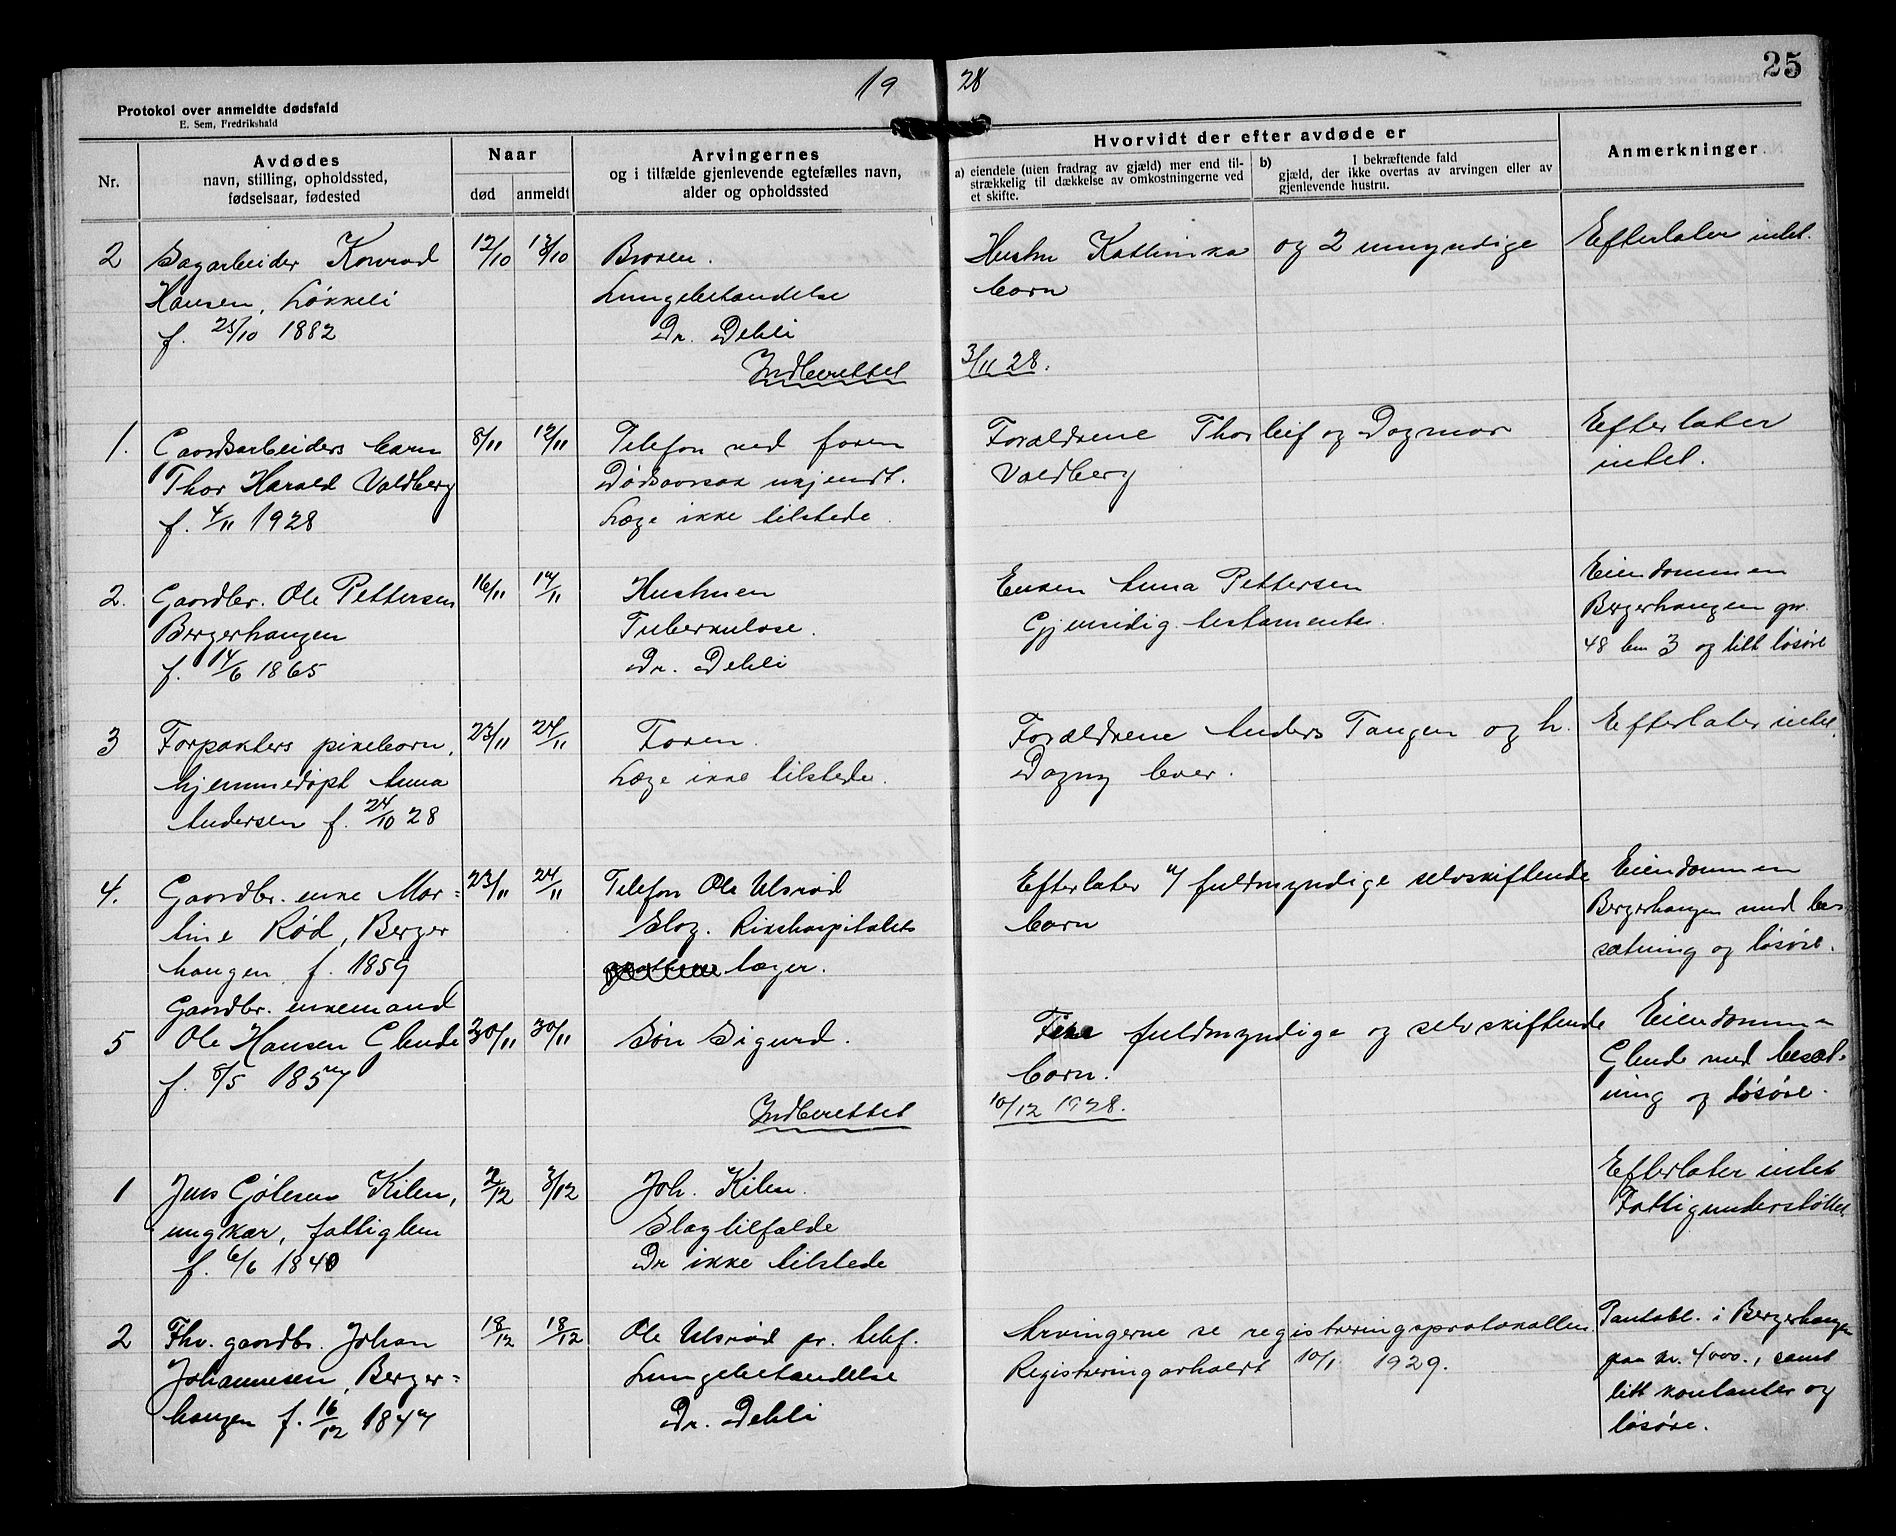 19 28
25
Protokol over anmeldte dødsfald
E. Sem, Fredrikshald
Nr.
Avdødes
navn, stilling, opholdssted,
fødselsaar, fødested
Naar
død
anmeldt
Arvingernes
og i tilfælde gjenlevende egtefælles navn,
alder og opholdssted
Hvorvidt der efter avdøde er
a) eiendele (uten fradrag av gjæld) mer end til-
strækkelig til dækkelse av omkostningerne ved
et skifte.
b) I bekræftende fald
gjæld, der ikke overtas av arvingen eller av
gjenlevende hustru.
Anmerkninger
2
Sagarbeider Konrad
Hansen, Løkkeli
f. 25/10 1882
12/10
13/10
Broren.
Lungebetændelse
Dr. Dehli
Hustru Kathinka og 2 umyndige
barn
Efterlater intet.
Indberettet 3/11 28.
1.
Gaardsarbeiders barn
Thor Harald Valdberg
f. 4/11 1928
8/11
12/11
Telefon ved faren
Dødsaarsak ukjendt.
Læge ikke tilstede.
Forældrene Thorleif og Dagmar
Valdberg
Efterlater
intet.
2.
Gaardbr. Ole Pettersen
Bergerhaugen
f. 14/6 1865
16/11
17/11
Hustruen
Tuberkulose.
Dr. Dehli
Enken Anna Pettersen
Gjensidig testamente.
Eiendommen
Bergerhaugen gnr.
48 bn 3 og litt løsøre
3
Forpakters pikebarn,
hjemmedøpt Anna
Andersen f. 24/10 28
23/11
24/11
Faren.
Læge ikke tilstede.
Forældrene Anders Tangen og h.
Dagny lever.
Efterlater intet.
4.
Gaardbr. enke Mar-
tine Rød, Berger
haugen f. 1859
23/11
24/11
Telefon Ole Ulsrød
Slag. Rikshospitalets
læger.
Efterlater 4 fuldmyndige selvskiftende
barn
Eiendommen
Bergerhaugen med be-
sætning og løsøre.
5
Gaardbr. enkemand
Ole Hansen Glende
f. 8/5 1857
30/11
30/11
Søn Sigurd.
Fire fuldmyndige og selvskiftende
barn.
Eiendommen
Glende med besæt-
ning og løsøre.
Indberettet 10/12 1928.
1
Jens Gølesen Kilen,
ungkar, fattiglem
f. 6/6 1840
2/12
3/12
Joh. Kilen.
Slagtilfælde
Dr ikke tilstede
Efterlater intet
Fattigunderstøttet
2
Fhv. gaardbr. Johan
Johannesen, Berger-
haugen f. 16/12 1847
18/12
18/12
Ole Ulsrød pr. telef.
Lungebetændelse
Dr. Dehli
Arvingerne se registreringsprotokollen.
Registrering avholdt 10/1 1929.
Pantobl. i Bergerhaugen
paa kr. 4000., samt
litt kontanter og
løsøre.